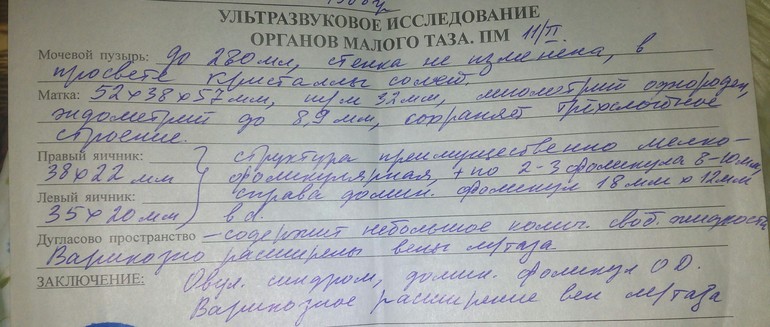 УЛЬТРАЗВУКОВОЕ ИССЛЕДОВАНИЕ
ОРГАНОВ МАЛОГО ТАЗА. ПМ 11/II
Мочевой пузырь: до 280 мл, стенка не изменена, в
просвете кристаллы солей.
Матка: 52×38×57 мм, ш/м 32 мм, миометрий однороден,
эндометрий до 8,9 мм, сохраняет трёхслойное
строение.
Правый яичник: структура преимущественно мелко-
38×22 мм фоликулярная, + по 2-3 фоликула 8-10мм,
Левый яичник: справа домин. фоликул 18мм × 12мм
35×20мм в d.
Дугласово пространство – содержит небольшое колич. своб. жидкости
Варикозно расширены вены м/таза
ЗАКЛЮЧЕНИЕ: Овул. синдром, домин. фоликул OD.
Варикозное расширение вен м/таза